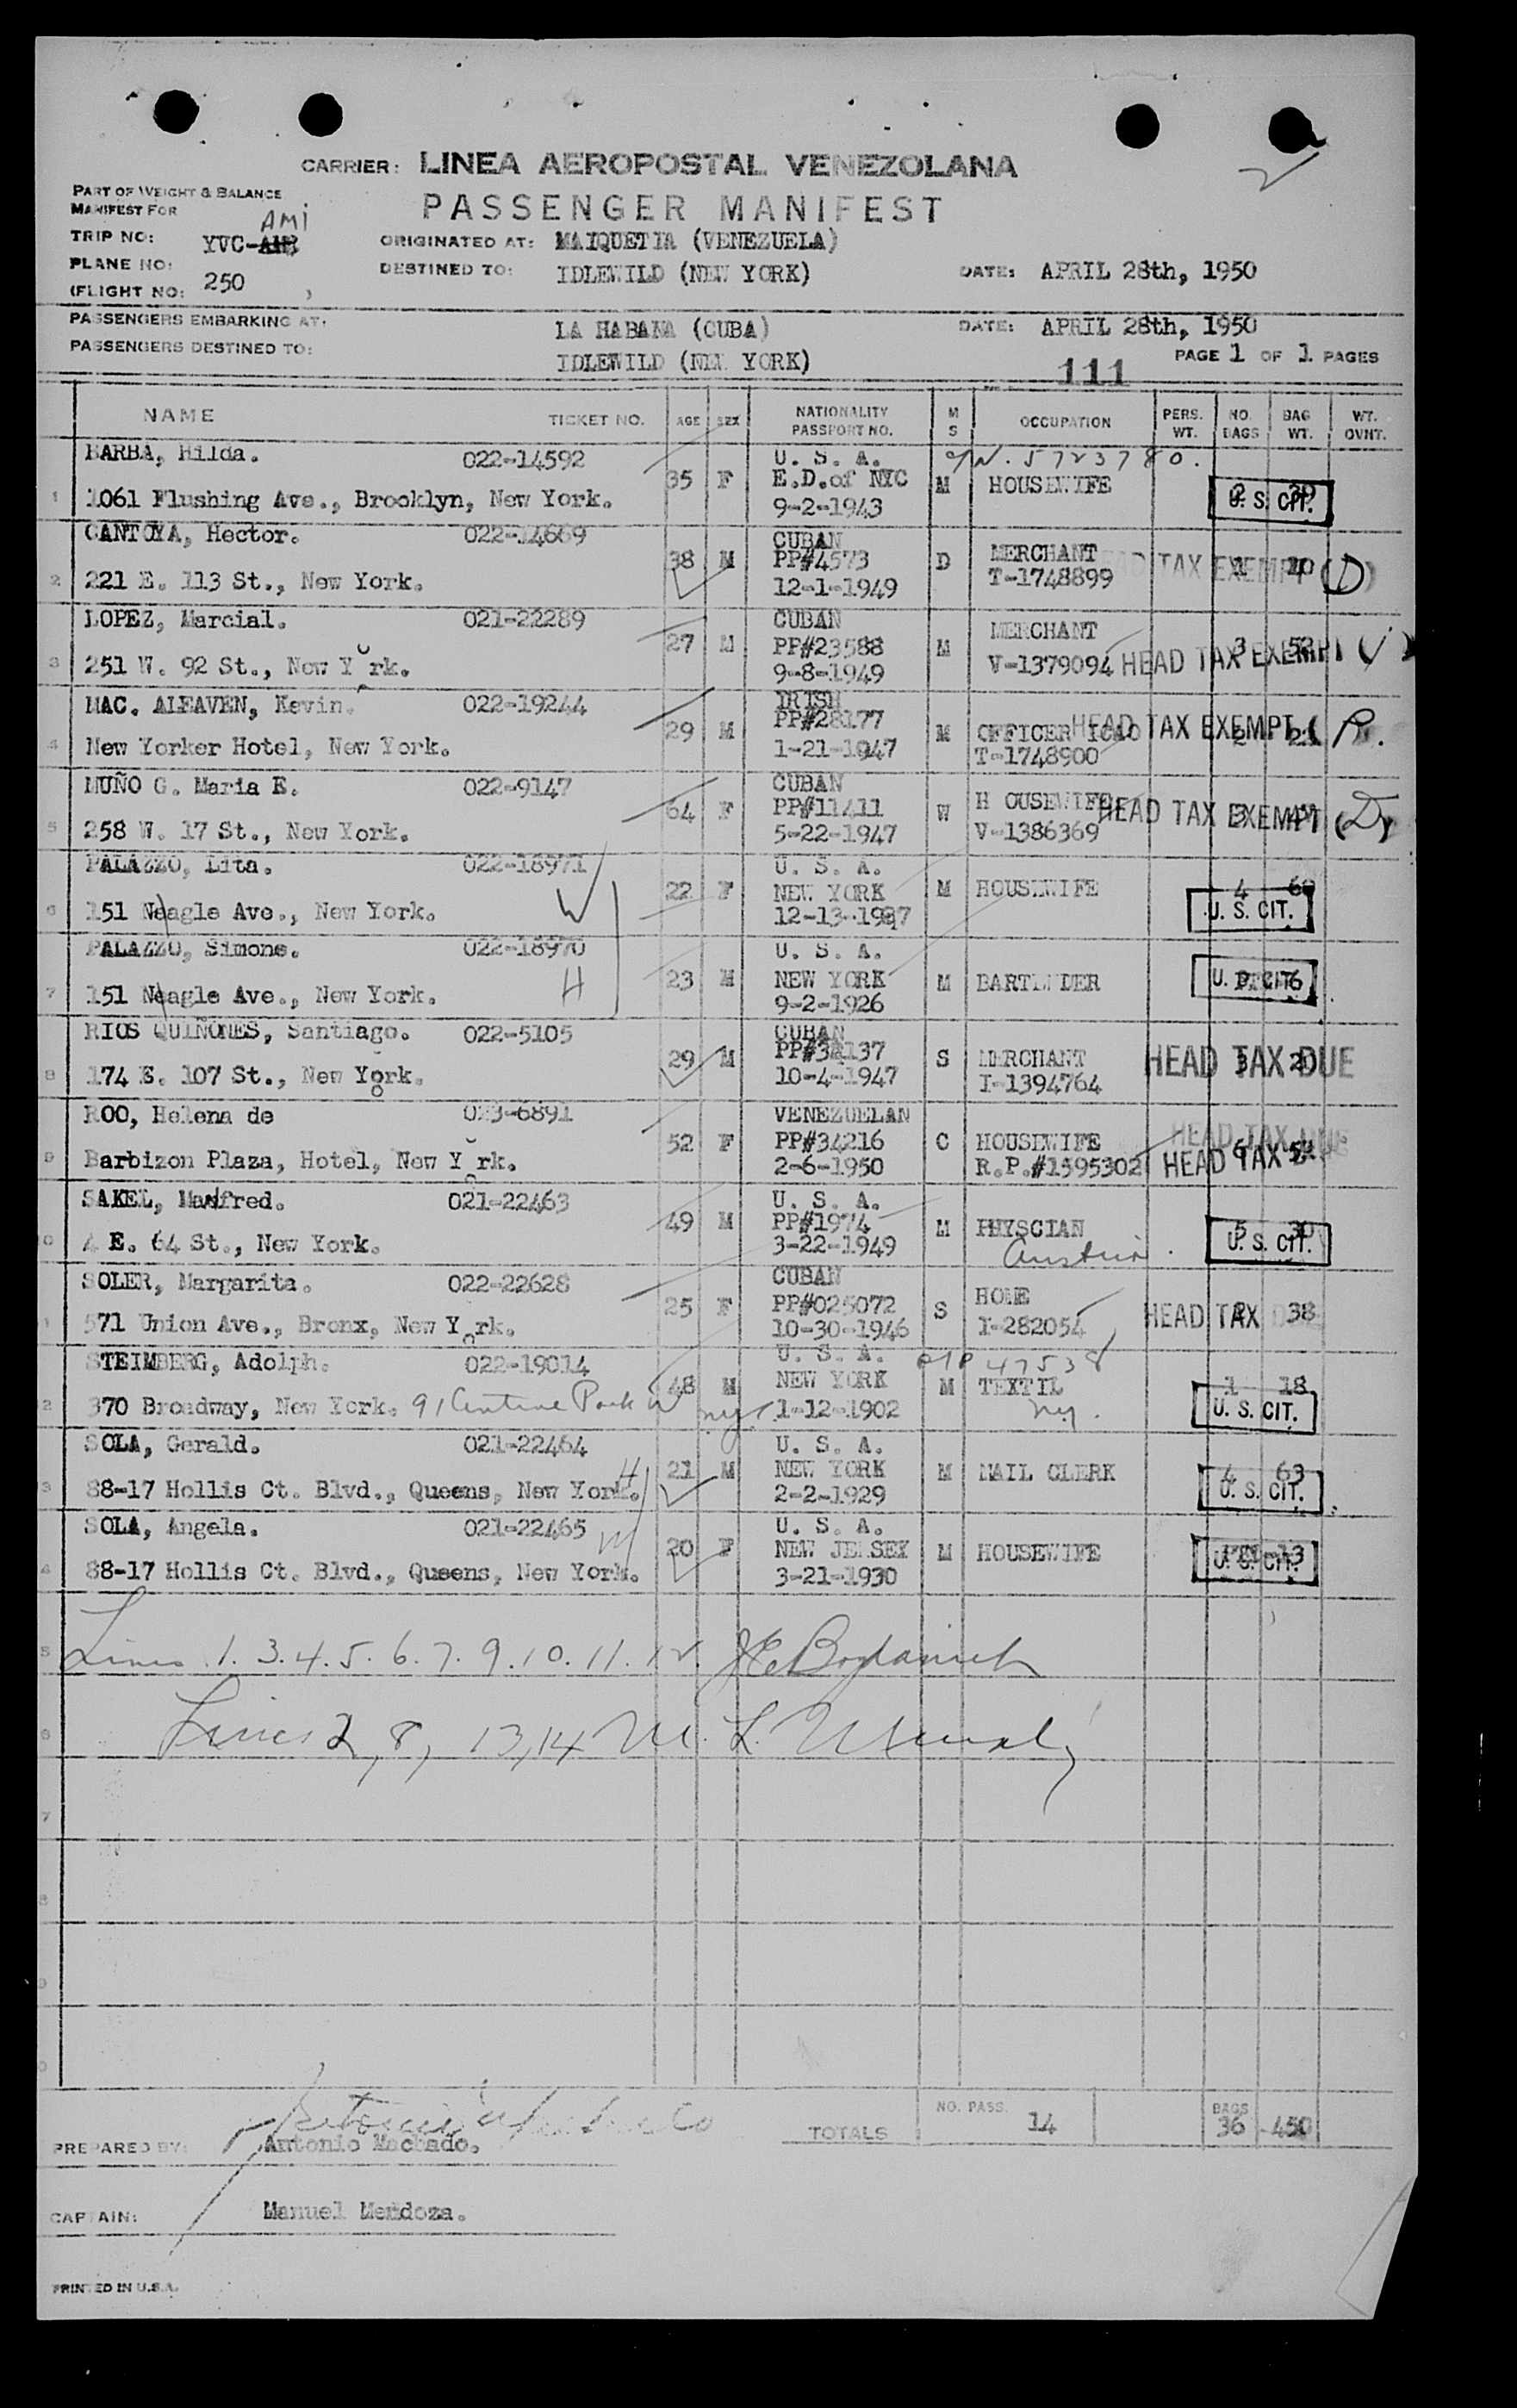 CARRIER: LINEA AEROPOSTAL VENEZOLANA
PART OF WEIGHT & BALANCE
MANIFEST FOR
PASSENGER MANIFEST
AMI
TRIP NO: YVC-AHB ORIGINATED AT: MAIQUETIA (VENEZUELA)
PLANE NO: DESTINED TO: IDLEWILD (NEW YORK) DATE: APRIL 28th, 1950
(FLIGHT NO: 250 )
PASSENGERS EMBARKING AT: LA HABANA (CUBA) DATE: APRIL 28th, 1950
PASSENGERS DESTINED TO: IDLEWILD (NEW YORK) PAGE 1 OF 1 PAGES
111
NAME TICKET NO. AGE SEX NATIONALITY PASSPORT NO. M S OCCUPATION PERS. WT. NO. BAGS BAG WT. WT. OVNT.
BARBA, Hilda. 022-14592 U. S. A. N. 5723780.
1 35 F E.D.of NYC M HOUSEWIFE 2 U. S. CIT.
1061 Flushing Ave., Brooklyn, New York. 9-2-1943
CANTOYA, Hector. 022-14669 CUBAN
38 M PP#4573 D MERCHANT 1 HEAD TAX EXEMPT (D)
2 221 E. 113 St., New York. 12-1-1949 T-1748899
LOPEZ, Marcial. 021-22289 CUBAN
27 M PP#23588 M MERCHANT 3 52
3 251 W. 92 St., New York. 9-8-1949 V-1379094 HEAD TAX EXEMPT (
MAC. ALEAVEN, Kevin. 022-19244 IRISH
29 M PP#28177 M OFFICER ICAO 2 21 HEAD TAX EXEMPT ( R.
4 New Yorker Hotel, New York. 1-21-1947 T-1748900
MUÑO G. Maria E. 022-9147 CUBAN
64 F PP#11411 W H OUSEWIFE 3 HEAD TAX EXEMPT (D)
5 258 W. 17 St., New York. 5-22-1947 V-1386369
PALAZZO, Lita. 022-18971 U. S. A.
22 F NEW YORK M HOUSEWIFE 4 60
6 151 Neagle Ave., New York. W 12-13-1927 U. S. CIT.
PALAZZO, Simone. 022-18970 U. S. A.
23 M NEW YORK M BARTENDER U. S. CIT.
7 151 Neagle Ave., New York. H 9-2-1926
RIOS QUIÑONES, Santiago. 022-5105 CUBAN
29 M PP#32137 S MERCHANT 3 HEAD TAX DUE
8 174 E. 107 St., New York. 10-4-1947 I-1394764
ROO, Helena de 023-6891 VENEZUELAN
52 F PP#34216 C HOUSEWIFE 6 54 HEAD TAX DUE
9 Barbizon Plaza, Hotel, New York. 2-6-1950 R.P.#1595302 HEAD TAX
SAKEL, Manfred. 021-22463 U. S. A.
49 M PP#1974 M PHYSCIAN 5 30
0 4 E. 64 St., New York. 3-22-1949 Austria. U. S. CIT.
SOLER, Margarita. 022-22628 CUBAN
25 F PP#025072 S HOME 2 38 HEAD TAX
1 571 Union Ave., Bronx, New York. 10-30-1946 I-282054
STEIMBERG, Adolph. 022-19014 U. S. A. PP 47538
48 M NEW YORK M TEXTIL 1 18
2 370 Broadway, New York. 91 Central Park W nyc. 1-12-1902 ny. U. S. CIT.
SOLA, Gerald. 021-22464 U. S. A.
H 21 M NEW YORK M MAIL CLERK 4 63
3 88-17 Hollis Ct. Blvd., Queens, New York. 2-2-1929 U. S. CIT.
SOLA, Angela. 021-22465 W U. S. A.
20 F NEW JERSEY M HOUSEWIFE 13 U. S. CIT.
4 88-17 Hollis Ct. Blvd., Queens, New York. 3-21-1930
5 Lines 1. 3. 4. 5. 6. 7. 9. 10. 11. 12.
6 Lines 2, 8, 13, 14 M. L.
7
NO. PASS. BAGS
TOTALS 14 36 450
PREPARED BY: Antonio Machado.
CAPTAIN: Manuel Mendoza.
PRINTED IN U.S.A.